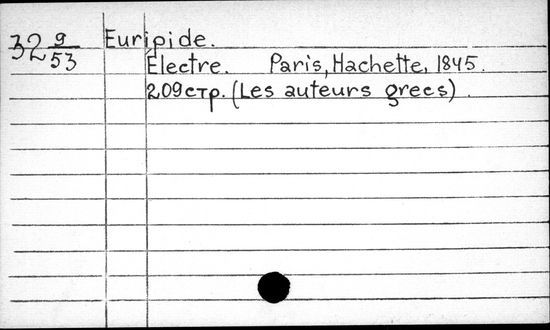 32 9/53 Euripide.
Électre. Paris, Hachette, 1845.
209 стр. (Les auteurs grecs).